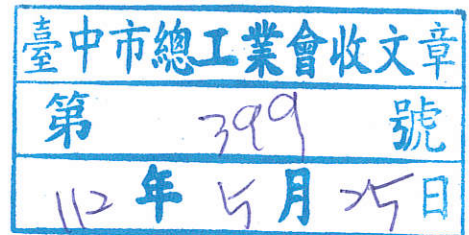 臺中市總工業會收文章
第 399 號
112 年 5 月 25 日